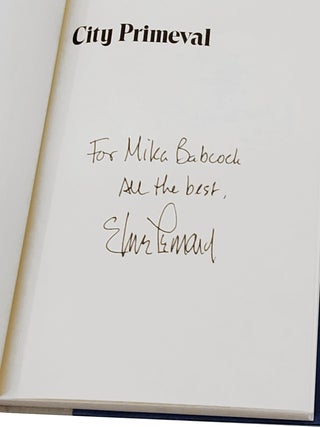 City Primeval
For Mika Babcock
All the best,
Elmore Leonard